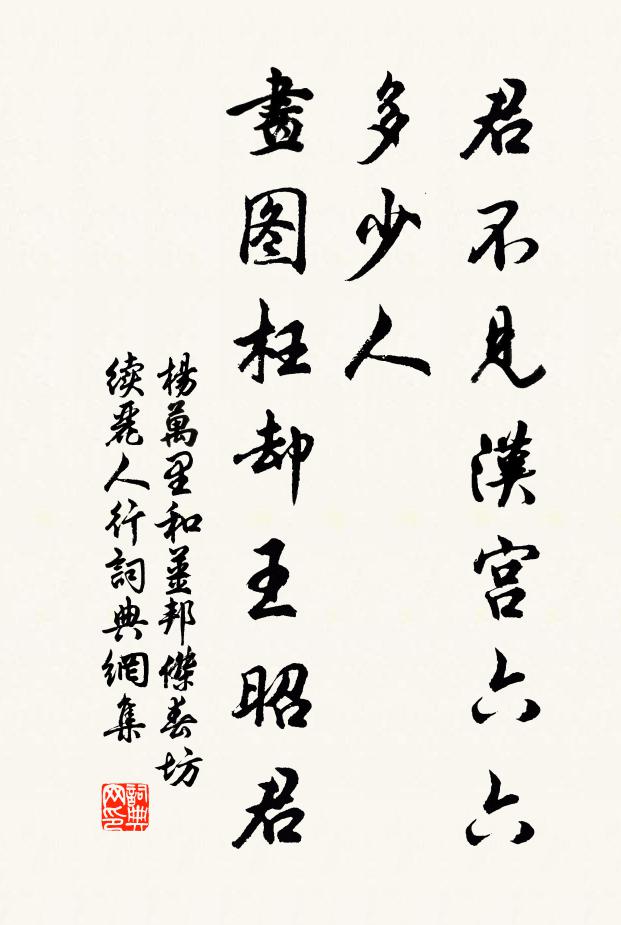 君不見漢宮六六
多少人
畫图枉却王昭君
楊萬里和薑邦傑春坊
續麗人行詞典網集
詞典
网印